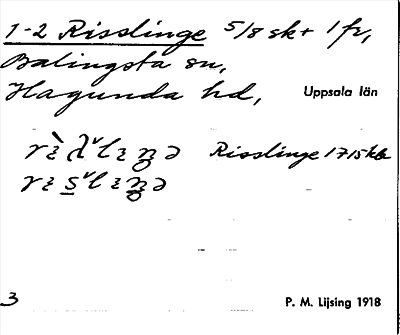 1-2 Risslinge 5/8 sk + 1 fr,
Balingsta sn,
Hagunda hd, Uppsala län
Risslinge 1715 kb
3 P. M. Lijsing 1918